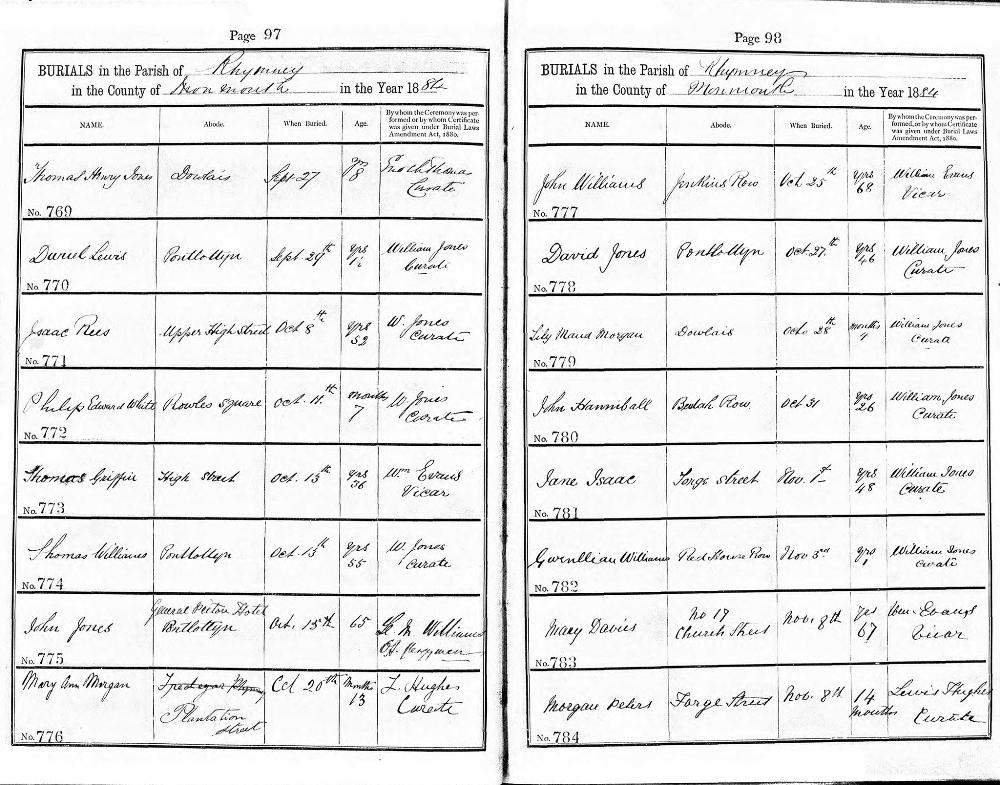 Page 97
BURIALS in the Parish of Rhymney
in the County of Monmouth in the Year 1884
NAME. Abode. When Buried. Age. By whom the Ceremony was performed or by whom Certificate was given under Burial Laws Amendment Act, 1880.
Thomas Henry Jones Dowlais Sept 27 yrs 8 Enoch Thomas Curate
No. 769
Daniel Lewis Pontlottyn Sept 29th yrs William Jones Curate
No. 770
Isaac Rees Upper High Street Oct 8th yrs 52 W. Jones Curate
No. 771
Philip Edward White Rowles Square Oct. 11th months 7 W. Jones Curate
No. 772
Thomas Griffin High Street Oct. 13th yrs 36 Wm Evans Vicar
No. 773
Thomas Williams Pontlottyn Oct. 13th yrs 55 W. Jones Curate
No. 774
General Picton Hotel
John Jones Pontlottyn Oct. 15th 65 M Williams
No. 775
Mary Ann Morgan Tredegar Rhymney Oct 20th Months 13 L. Hughes Curate
Plantation Street
No. 776
Page 98
BURIALS in the Parish of Rhymney
in the County of Monmouth in the Year 1884
NAME. Abode. When Buried. Age. By whom the Ceremony was performed, or by whom Certificate was given under Burial Laws Amendment Act, 1880.
John Williams Jenkins Row Oct 25th yrs 68 William Evans Vicar
No. 777
David Jones Pontlottyn Oct. 27th yrs 46 William Jones Curate
No. 778
Lily Maud Morgan Dowlais Octo 28th months William Jones Curate
No. 779
John Hanniball Beulah Row. Oct 31 yrs 26 William Jones Curate
No. 780
Jane Isaac Forge Street Nov. 1st yrs 48 William Jones Curate
No. 781
Gwenllian Williams Red House Row Nov 3rd yrs 1 William Jones Curate
No. 782
Mary Davies No 17 Church Street Nov. 8th yrs 67 Wm. Evans Vicar
No. 783
Morgan Peters Forge Street Nov. 8th 14 Months Lewis Hughes Curate
No. 784